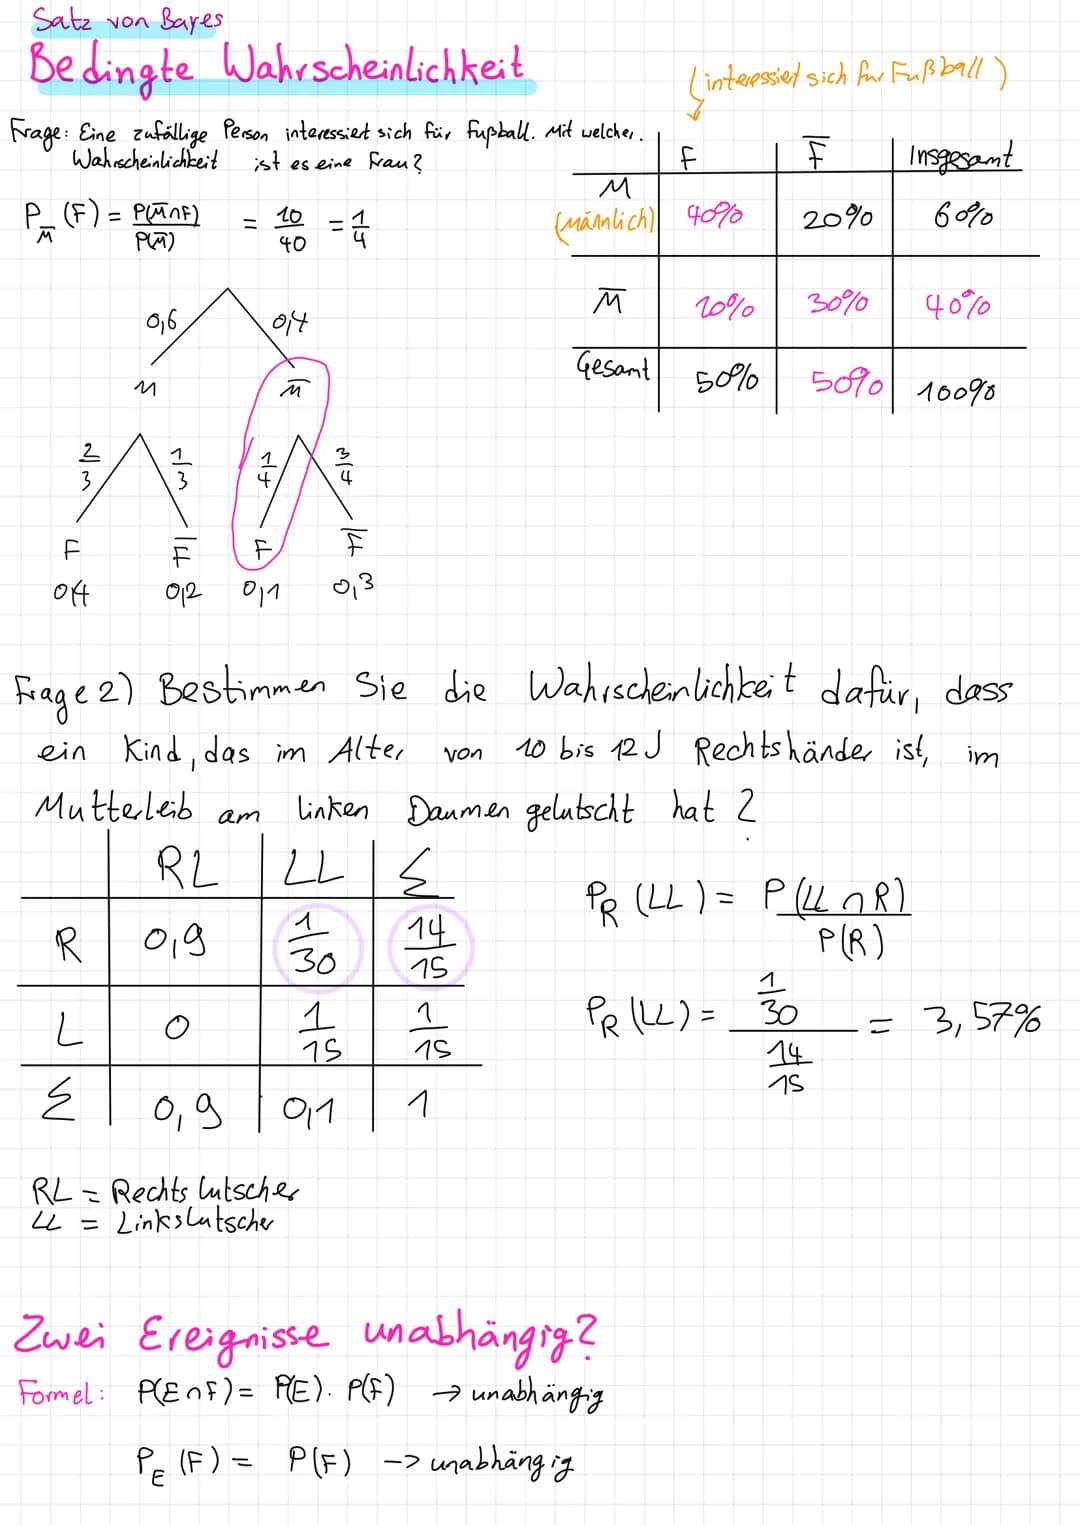 Satz von Bayes
Bedingte Wahrscheinlichkeit
(interessiert sich für Fußball)
Frage: Eine zufällige Person interessiert sich für Fußball. Mit welcher
Wahrscheinlichkeit ist es eine Frau?
F | F̅ | Insgesamt
M (männlich) | 40% | 20% | 60%
M̅ | 10% | 30% | 40%
Gesamt | 50% | 50% | 100%
P_M̅ (F) = P(M̅∩F) / P(M̅) = 10/40 = 1/4
0,6 0,4
M M̅
2/3 1/3 1/4 3/4
F F̅ F F̅
0,4 0,2 0,1 0,3
Frage 2) Bestimmen Sie die Wahrscheinlichkeit dafür, dass
ein Kind, das im Alter von 10 bis 12 J Rechtshänder ist, im
Mutterleib am linken Daumen gelutscht hat ?
RL | LL | Σ
R | 0,9 | 1/30 | 14/15
L | 0 | 1/15 | 1/15
Σ | 0,9 | 0,1 | 1
P_R (LL) = P(LL ∩ R) / P(R)
P_R (LL) = 1/30 / 14/15 = 3,57%
RL = Rechtslutscher
LL = Linkslutscher
Zwei Ereignisse unabhängig?
Formel: P(E∩F) = P(E) · P(F) → unabhängig
P_E (F) = P(F) -> unabhängig